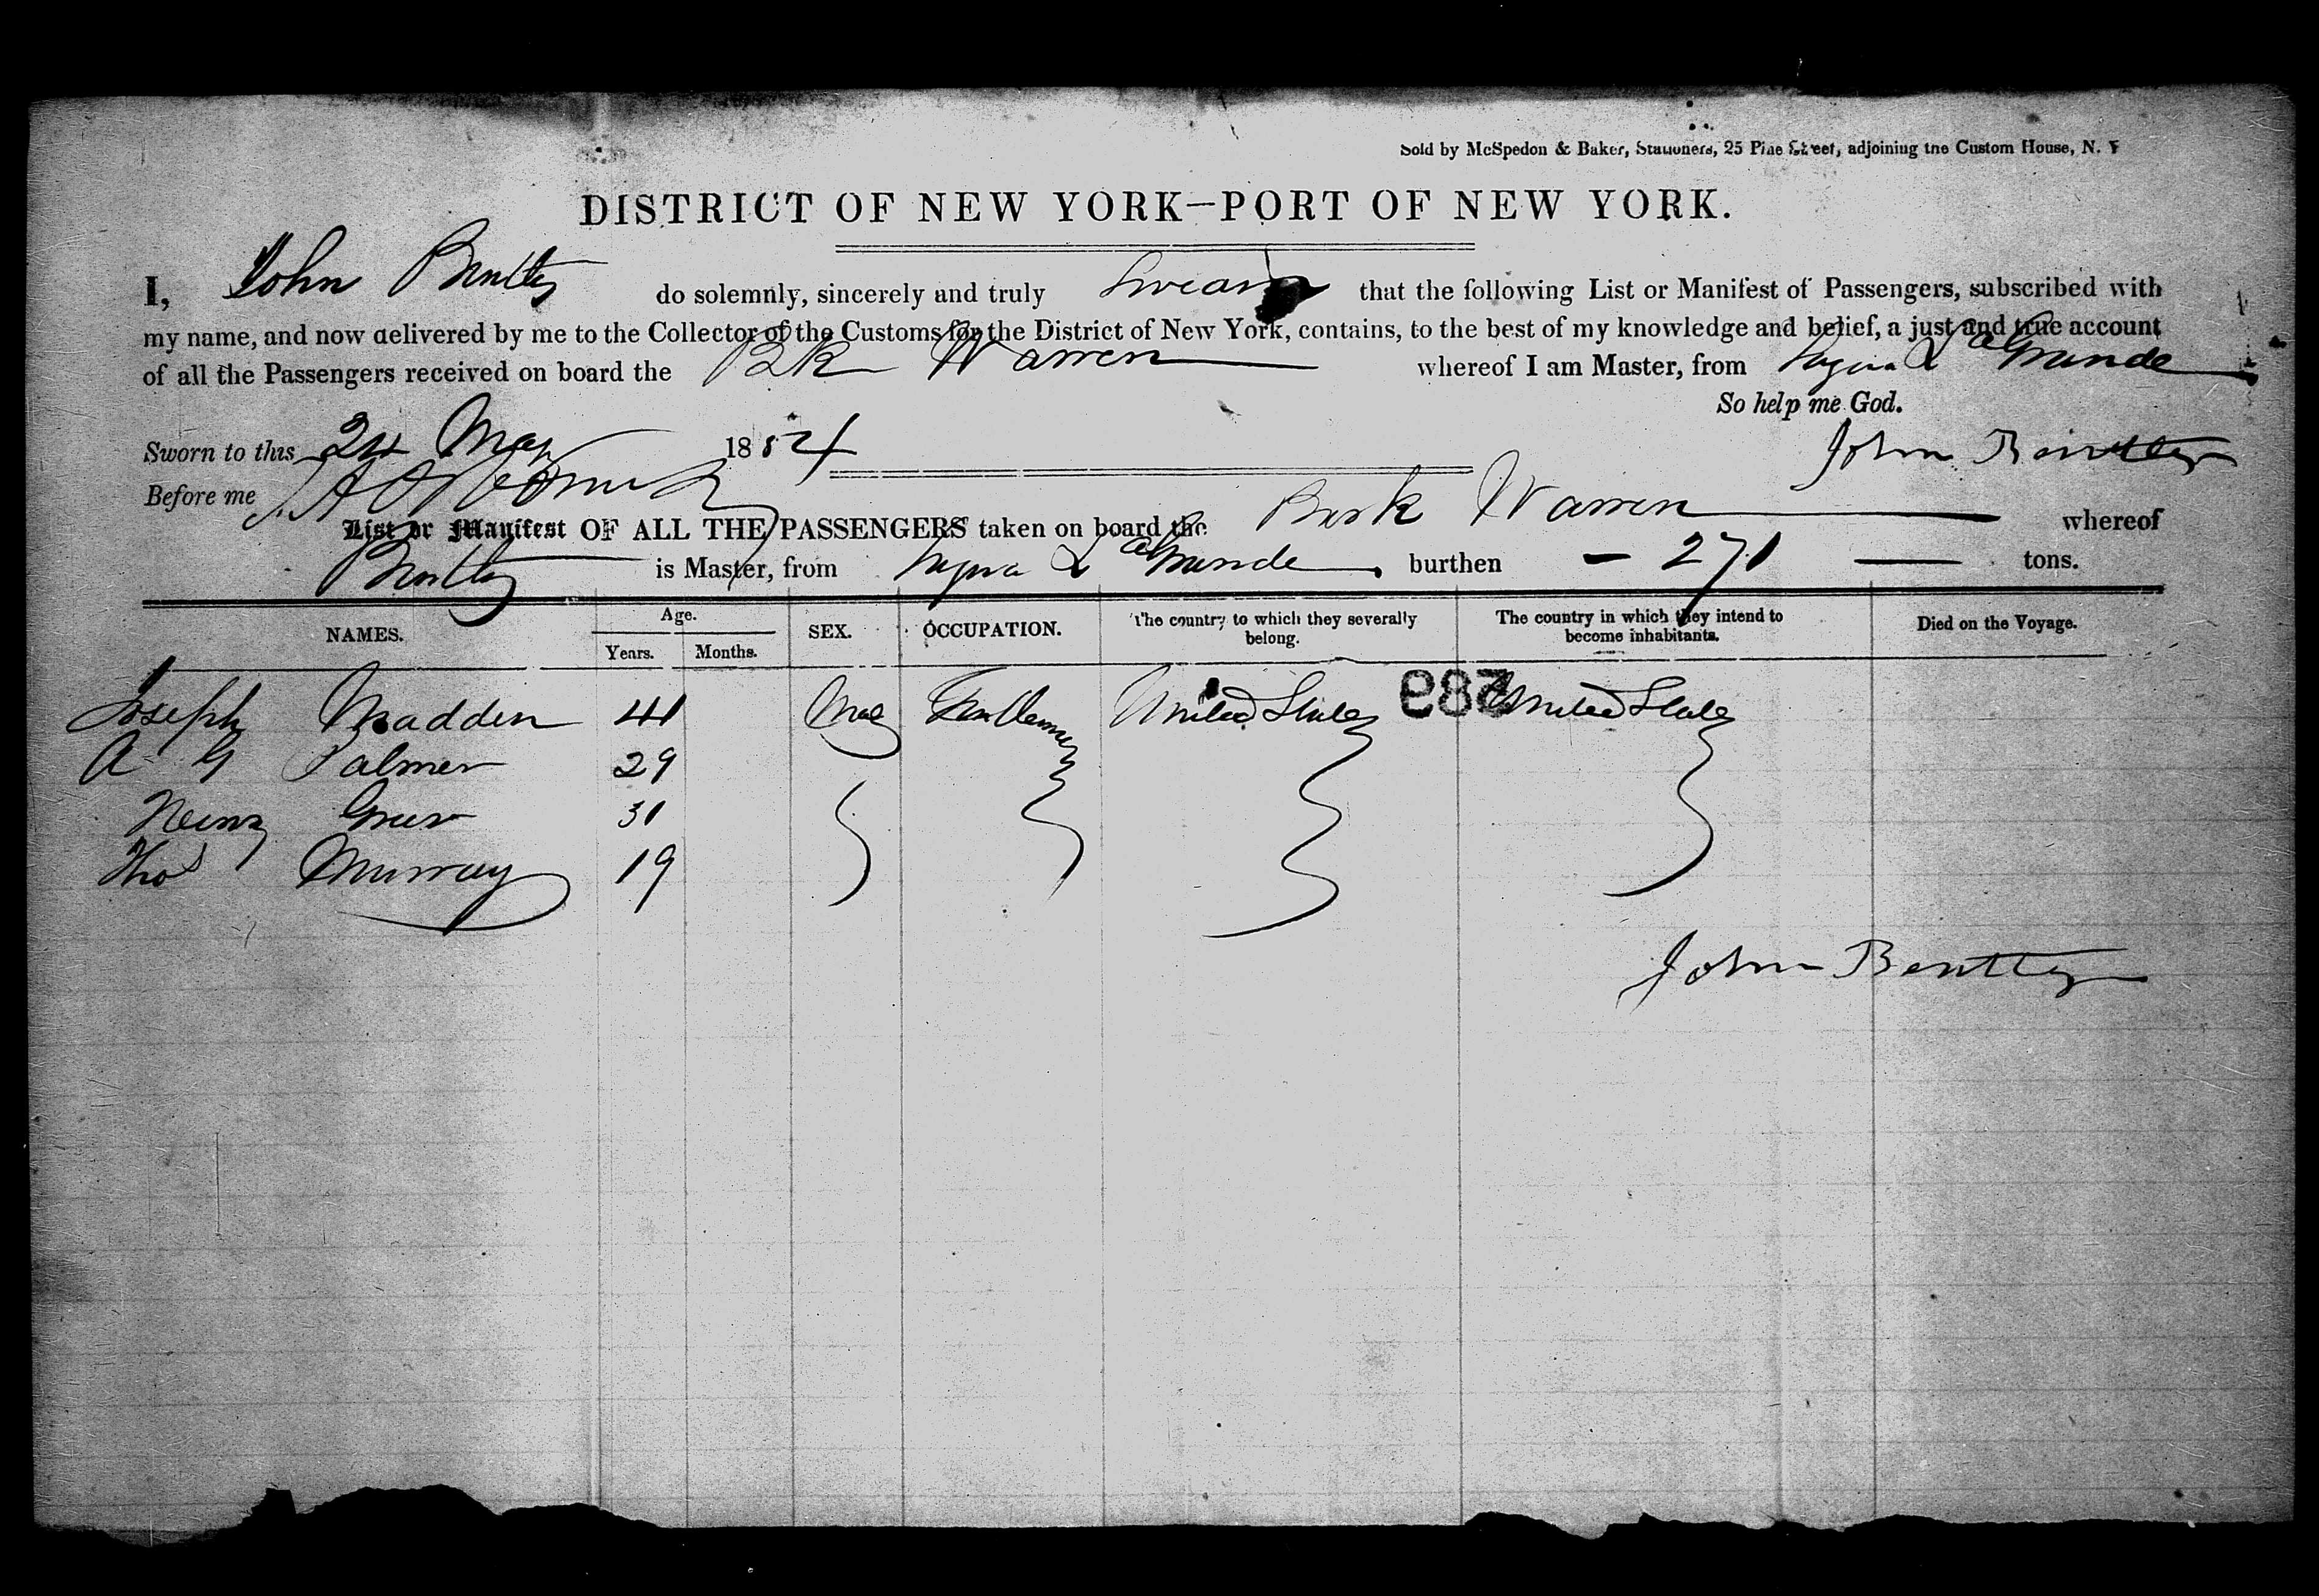 Sold by McSpedon & Baker, Stationers, 25 Pine Street, adjoining the Custom House, N. Y
DISTRICT OF NEW YORK—PORT OF NEW YORK.
I, John Bentley do solemnly, sincerely and truly Swear that the following List or Manifest of Passengers, subscribed with
my name, and now delivered by me to the Collector of the Customs for the District of New York, contains, to the best of my knowledge and belief, a just and true account
of all the Passengers received on board the Bk Warren whereof I am Master, from Sagua La Grande
So help me God.
Sworn to this 24 May 1854 John Bentley
Before me
List or Manifest OF ALL THE PASSENGERS taken on board the Bark Warren whereof
Bentley is Master, from Sagua La Grande burthen — 271 — tons.
NAMES. Age. Years. Months. SEX. OCCUPATION. The country to which they severally belong. The country in which they intend to become inhabitants. Died on the Voyage.
289
Joseph Madden 41 Male Gentleman United States United States
A G Palmer 29
Henry Greer 31
Thos Murray 19
John Bentley